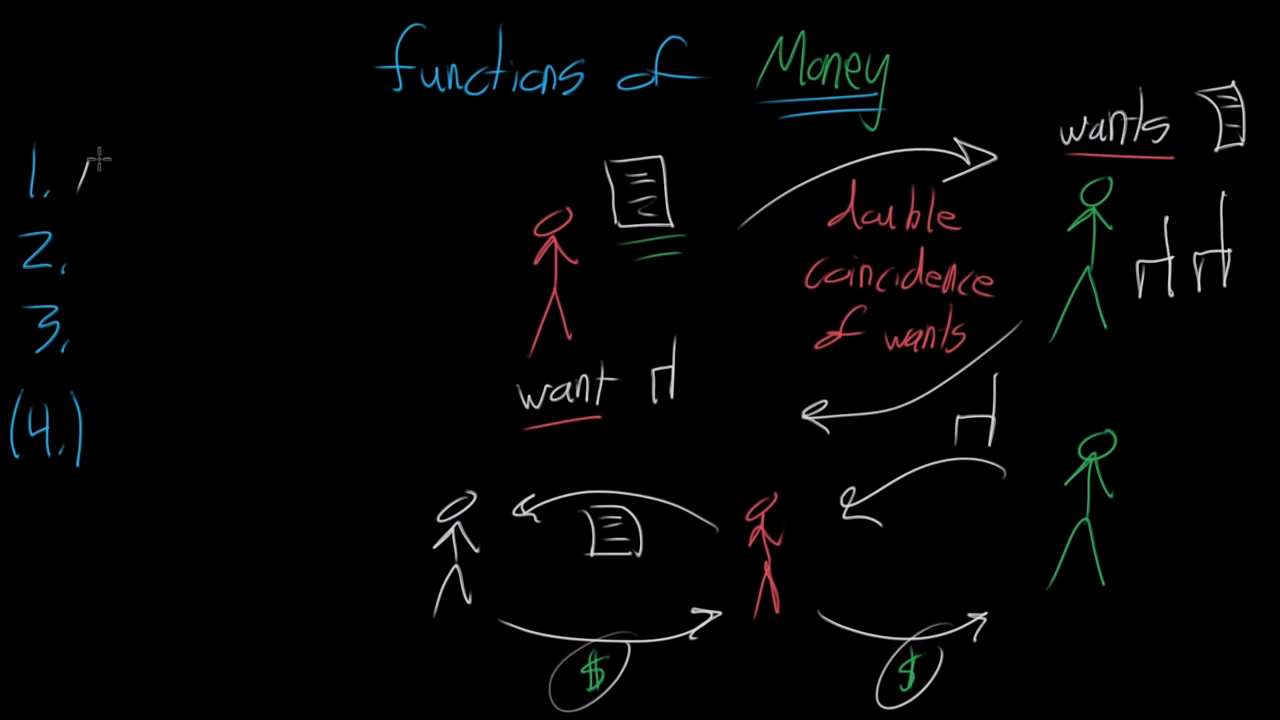 functions of Money
wants
1.
double
coincidence
of wants
2.
3.
want
(4.)
$
$